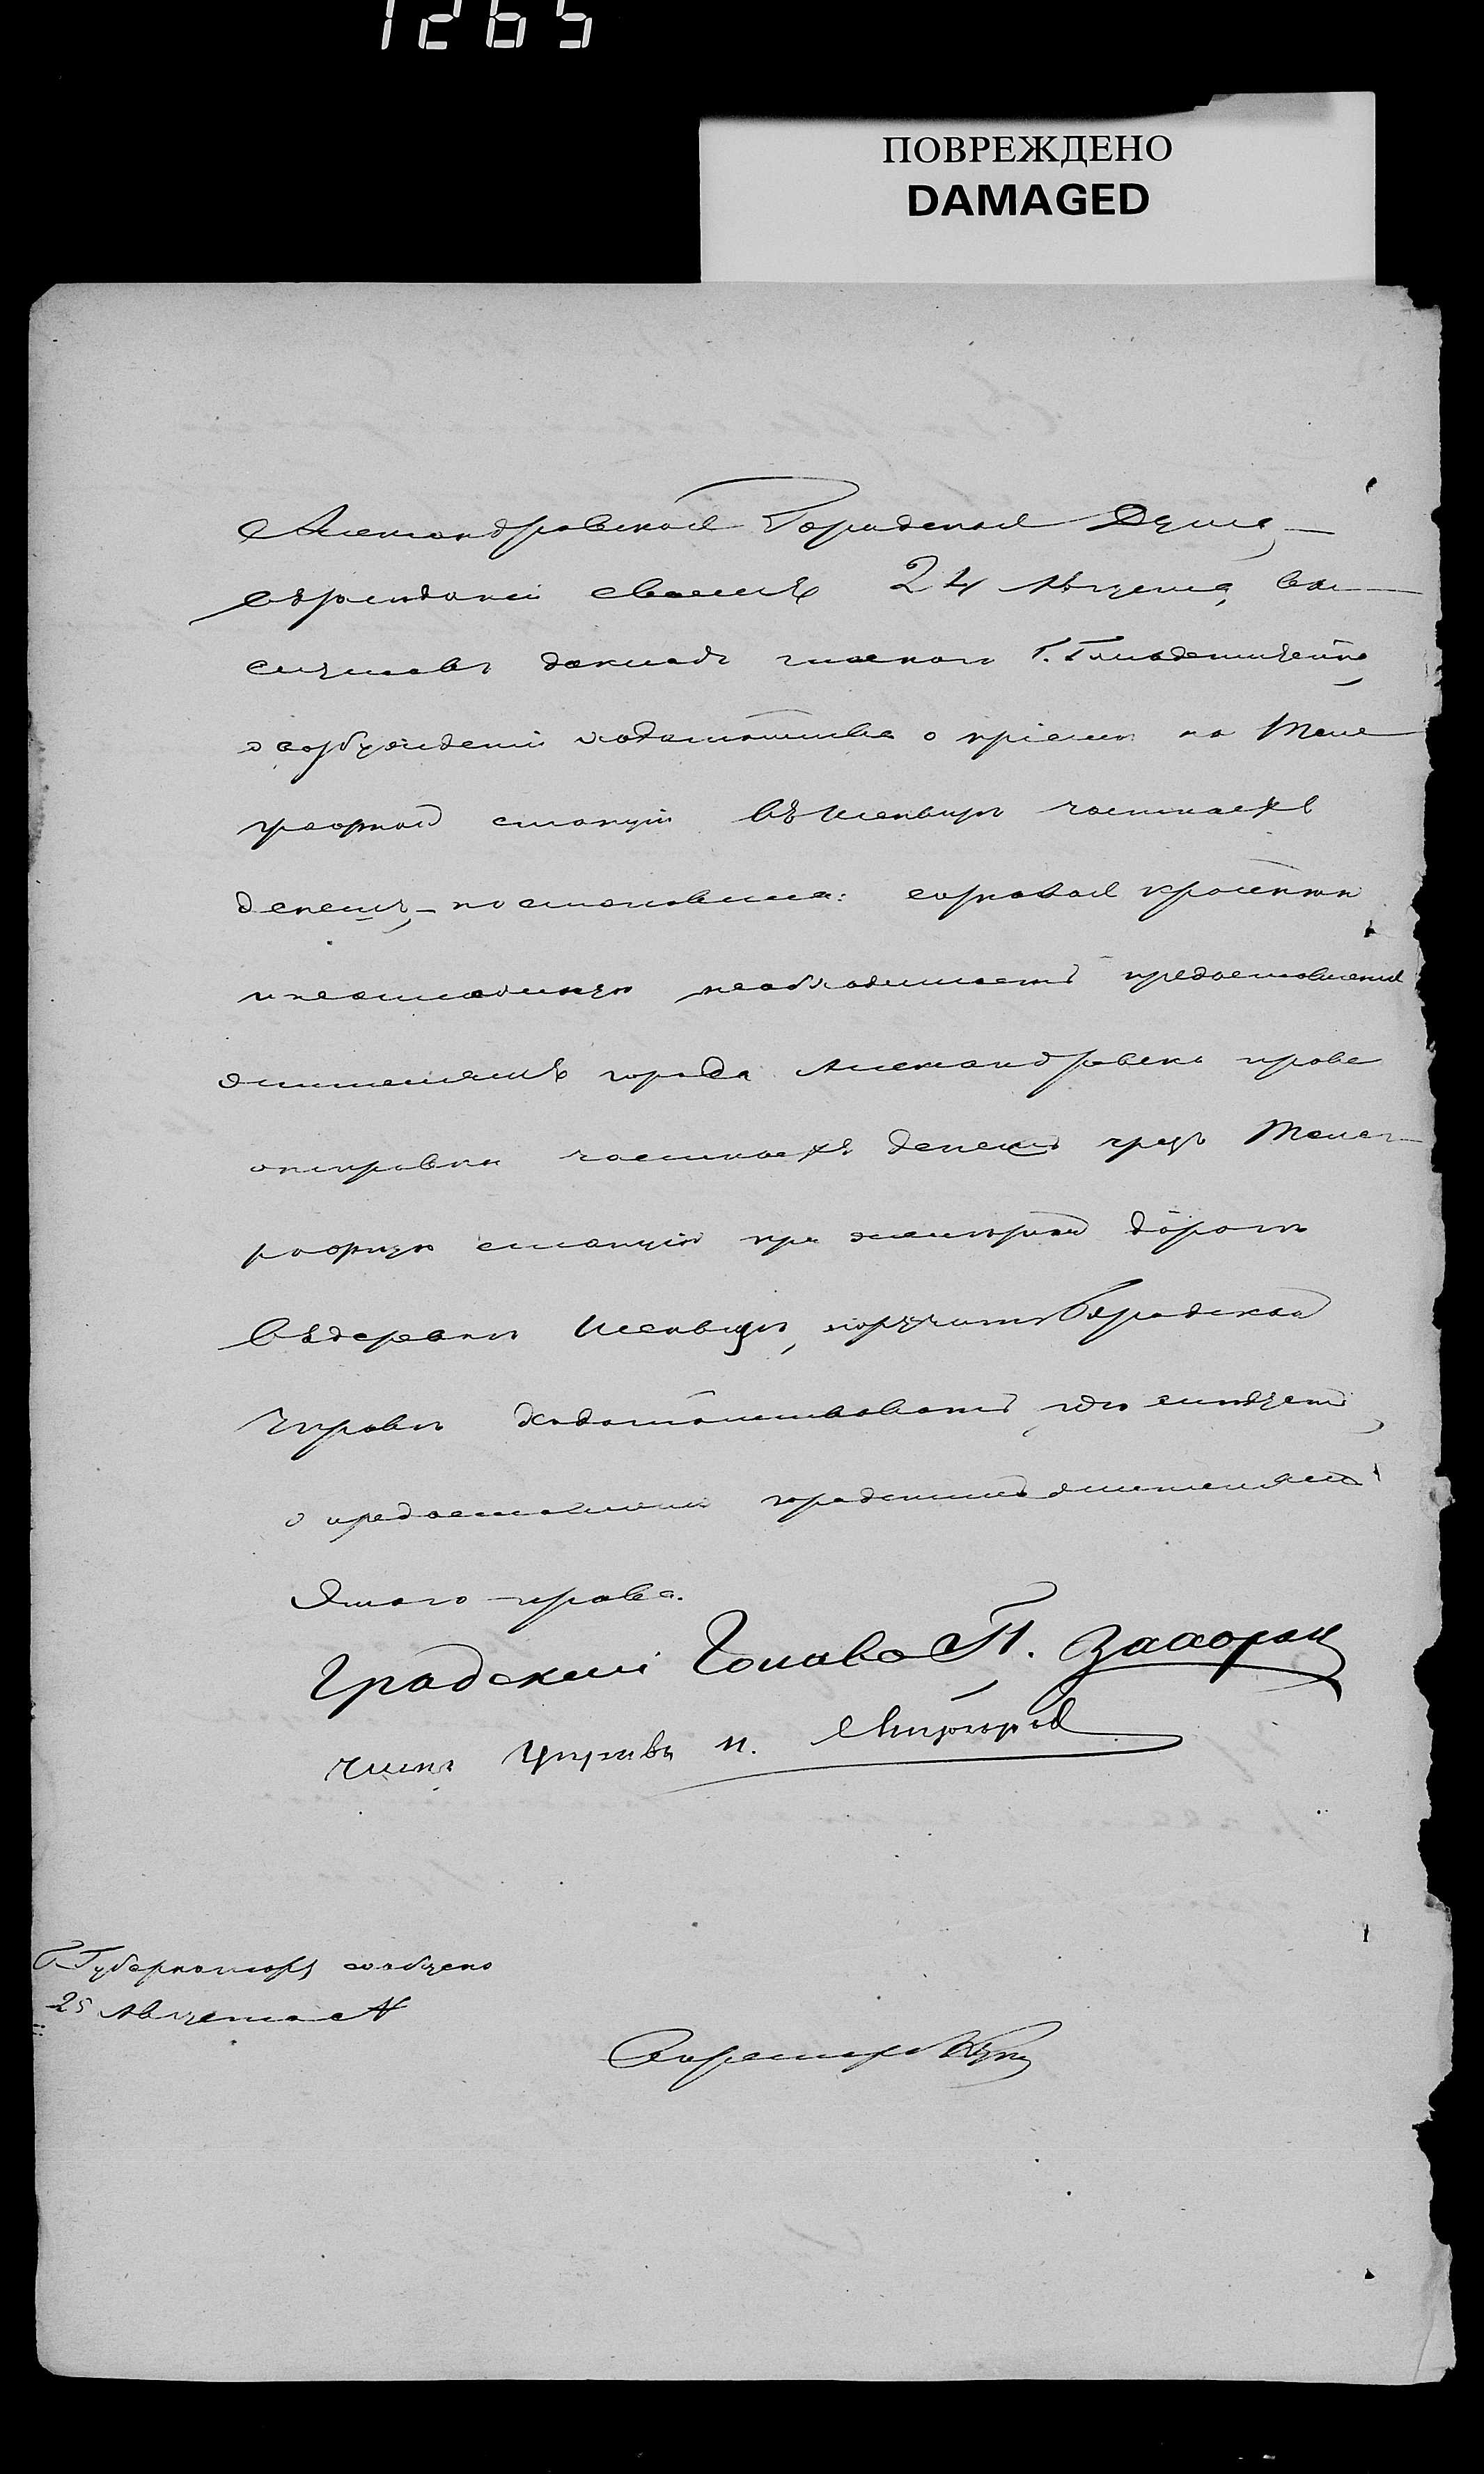 1265
ПОВРЕЖДЕНО
DAMAGED
Александровская Городская Дума,
въ заседаніи своемъ 24 Августа, вы-
слушавъ докладъ гласнаго Г.
о возбужденіи ходатайства о пріеме на Теле
графной станціи въ частныхъ
депешъ, – постановила: крайнюю
и неотложную необходимость предоставленія
жителямъ города Александровска права
отправки частныхъ депешъ чрезъ Телег-
рафную станцію при железной дороге
въ деревне поручить Городской
Управе ходатайствовать, где следуетъ,
о предоставленіи городскимъ жителямъ
этого права.
Градскій Голова П. Захарин
Члнъ Управы П.
Г. Губернатору сообщено
25 Августа с №
Секретарь